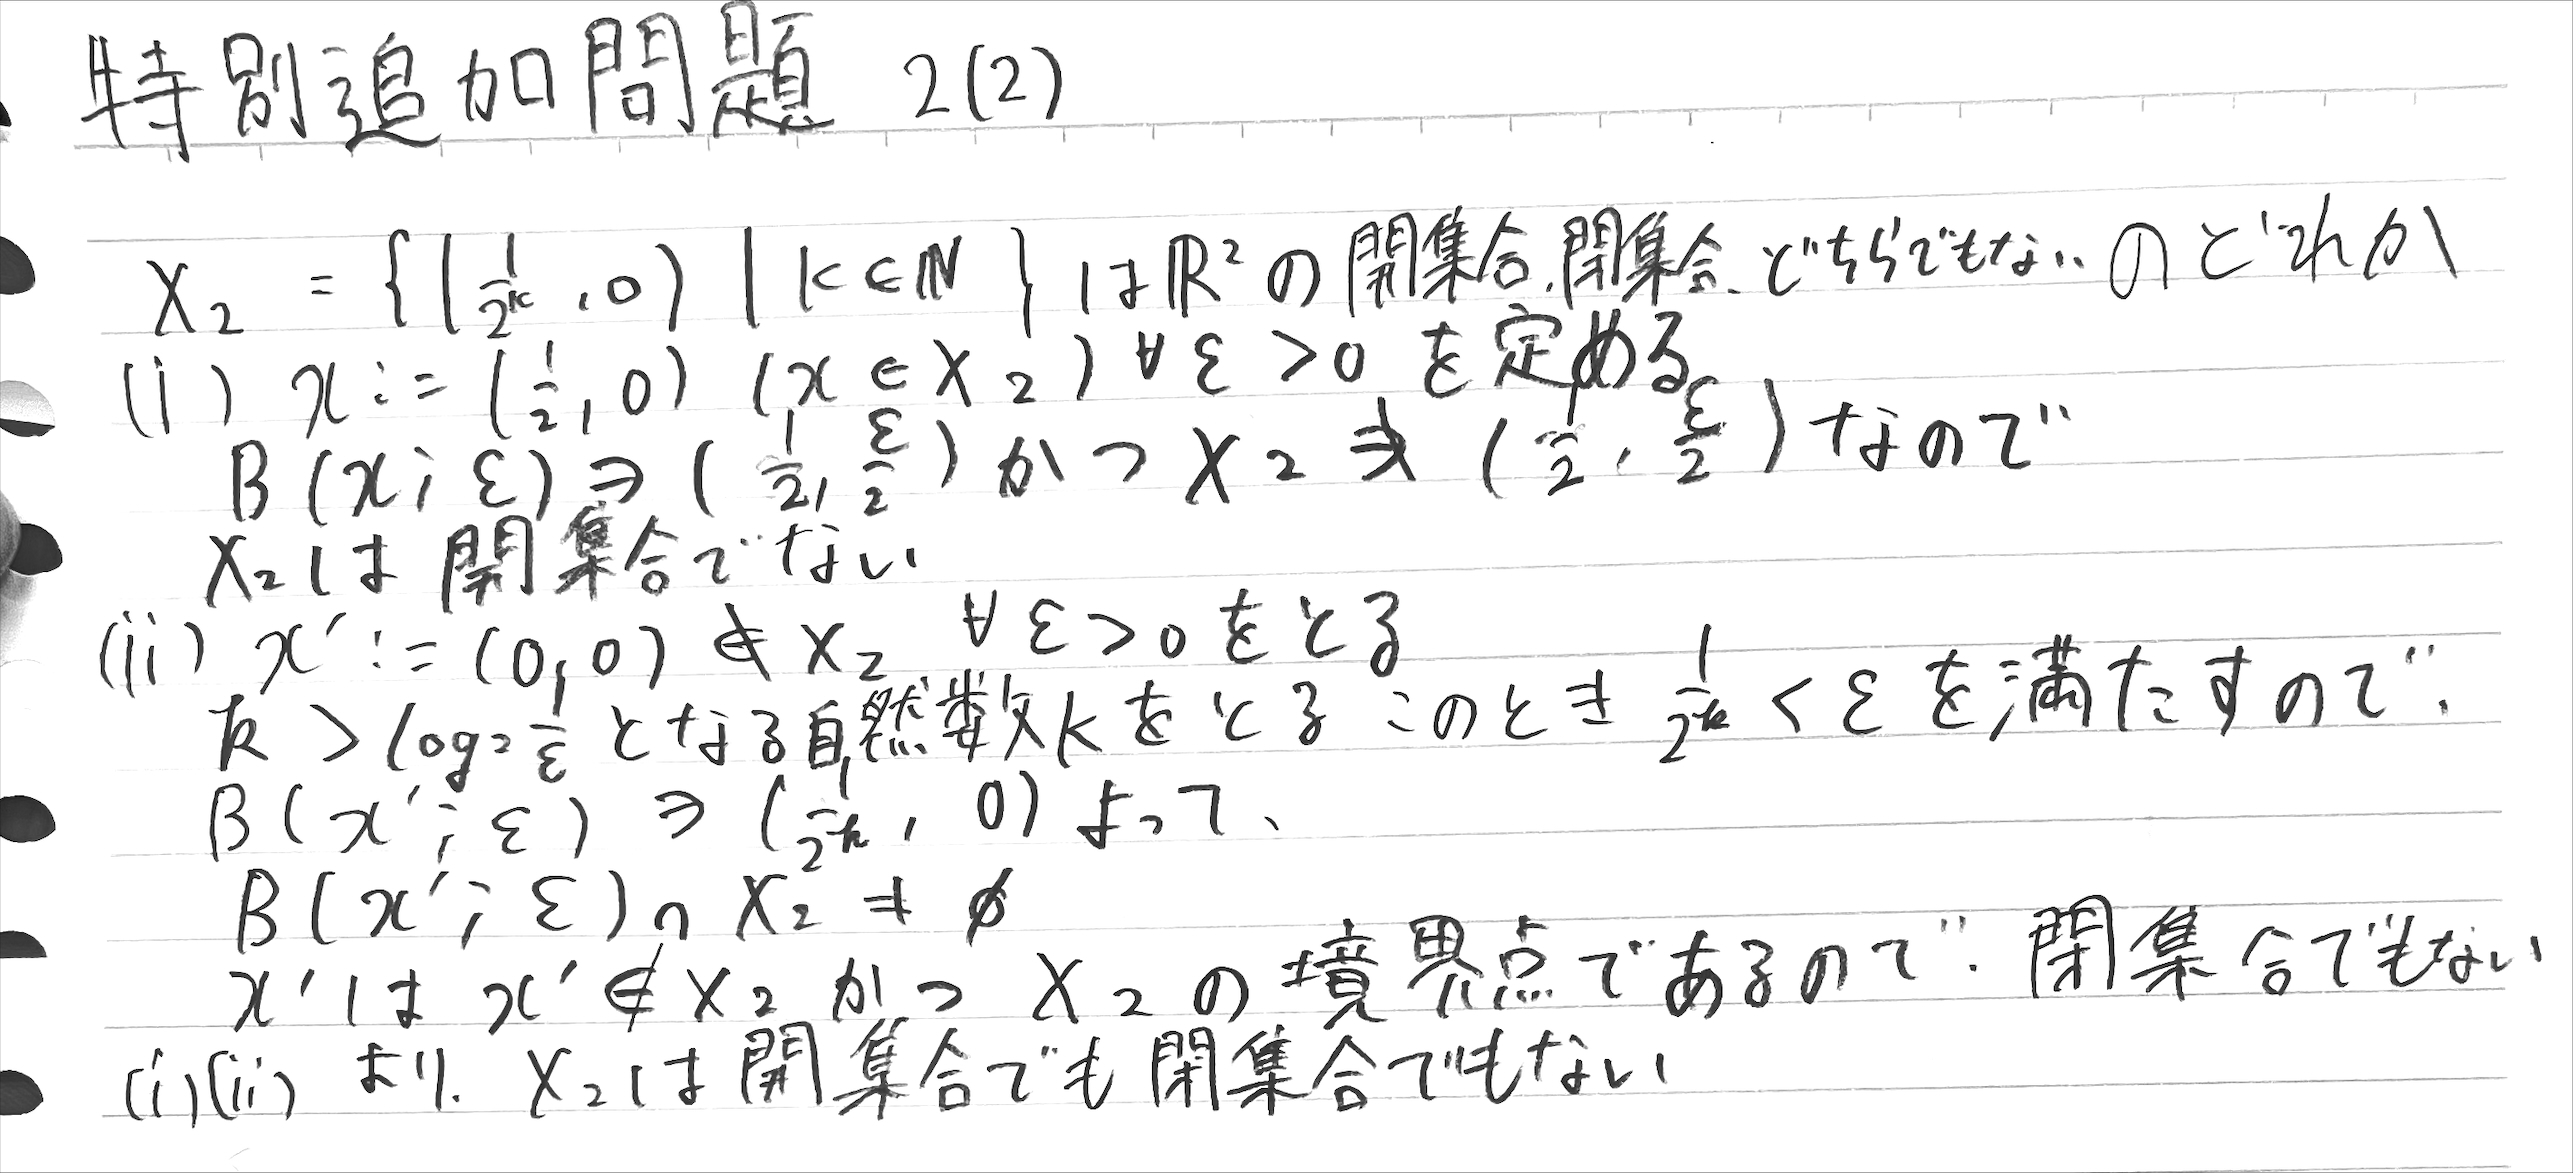 特別追加問題 2(2)
X₂ = {(1/2ᵏ, 0) | k∈ℕ} はℝ²の開集合、閉集合、どちらでもない のどれか
(i) x := (1/2, 0) (x∈X₂) ∀ε>0 を定める
B(x; ε) ∋ (1/2, ε/2) かつ X₂ ∌ (1/2, ε/2) なので
X₂は開集合でない
(ii) x' := (0,0) ∉ X₂ ∀ε>0をとる
k > log₂ 1/ε となる自然数kをとる このとき 1/2ᵏ < ε を満たすので、
B(x'; ε) ∋ (1/2ᵏ, 0) よって、
B(x'; ε) ∩ X₂ ≠ ∅
x'は x'∉X₂ かつ X₂の境界点であるので、閉集合でもない
(i)(ii) より、X₂は開集合でも閉集合でもない